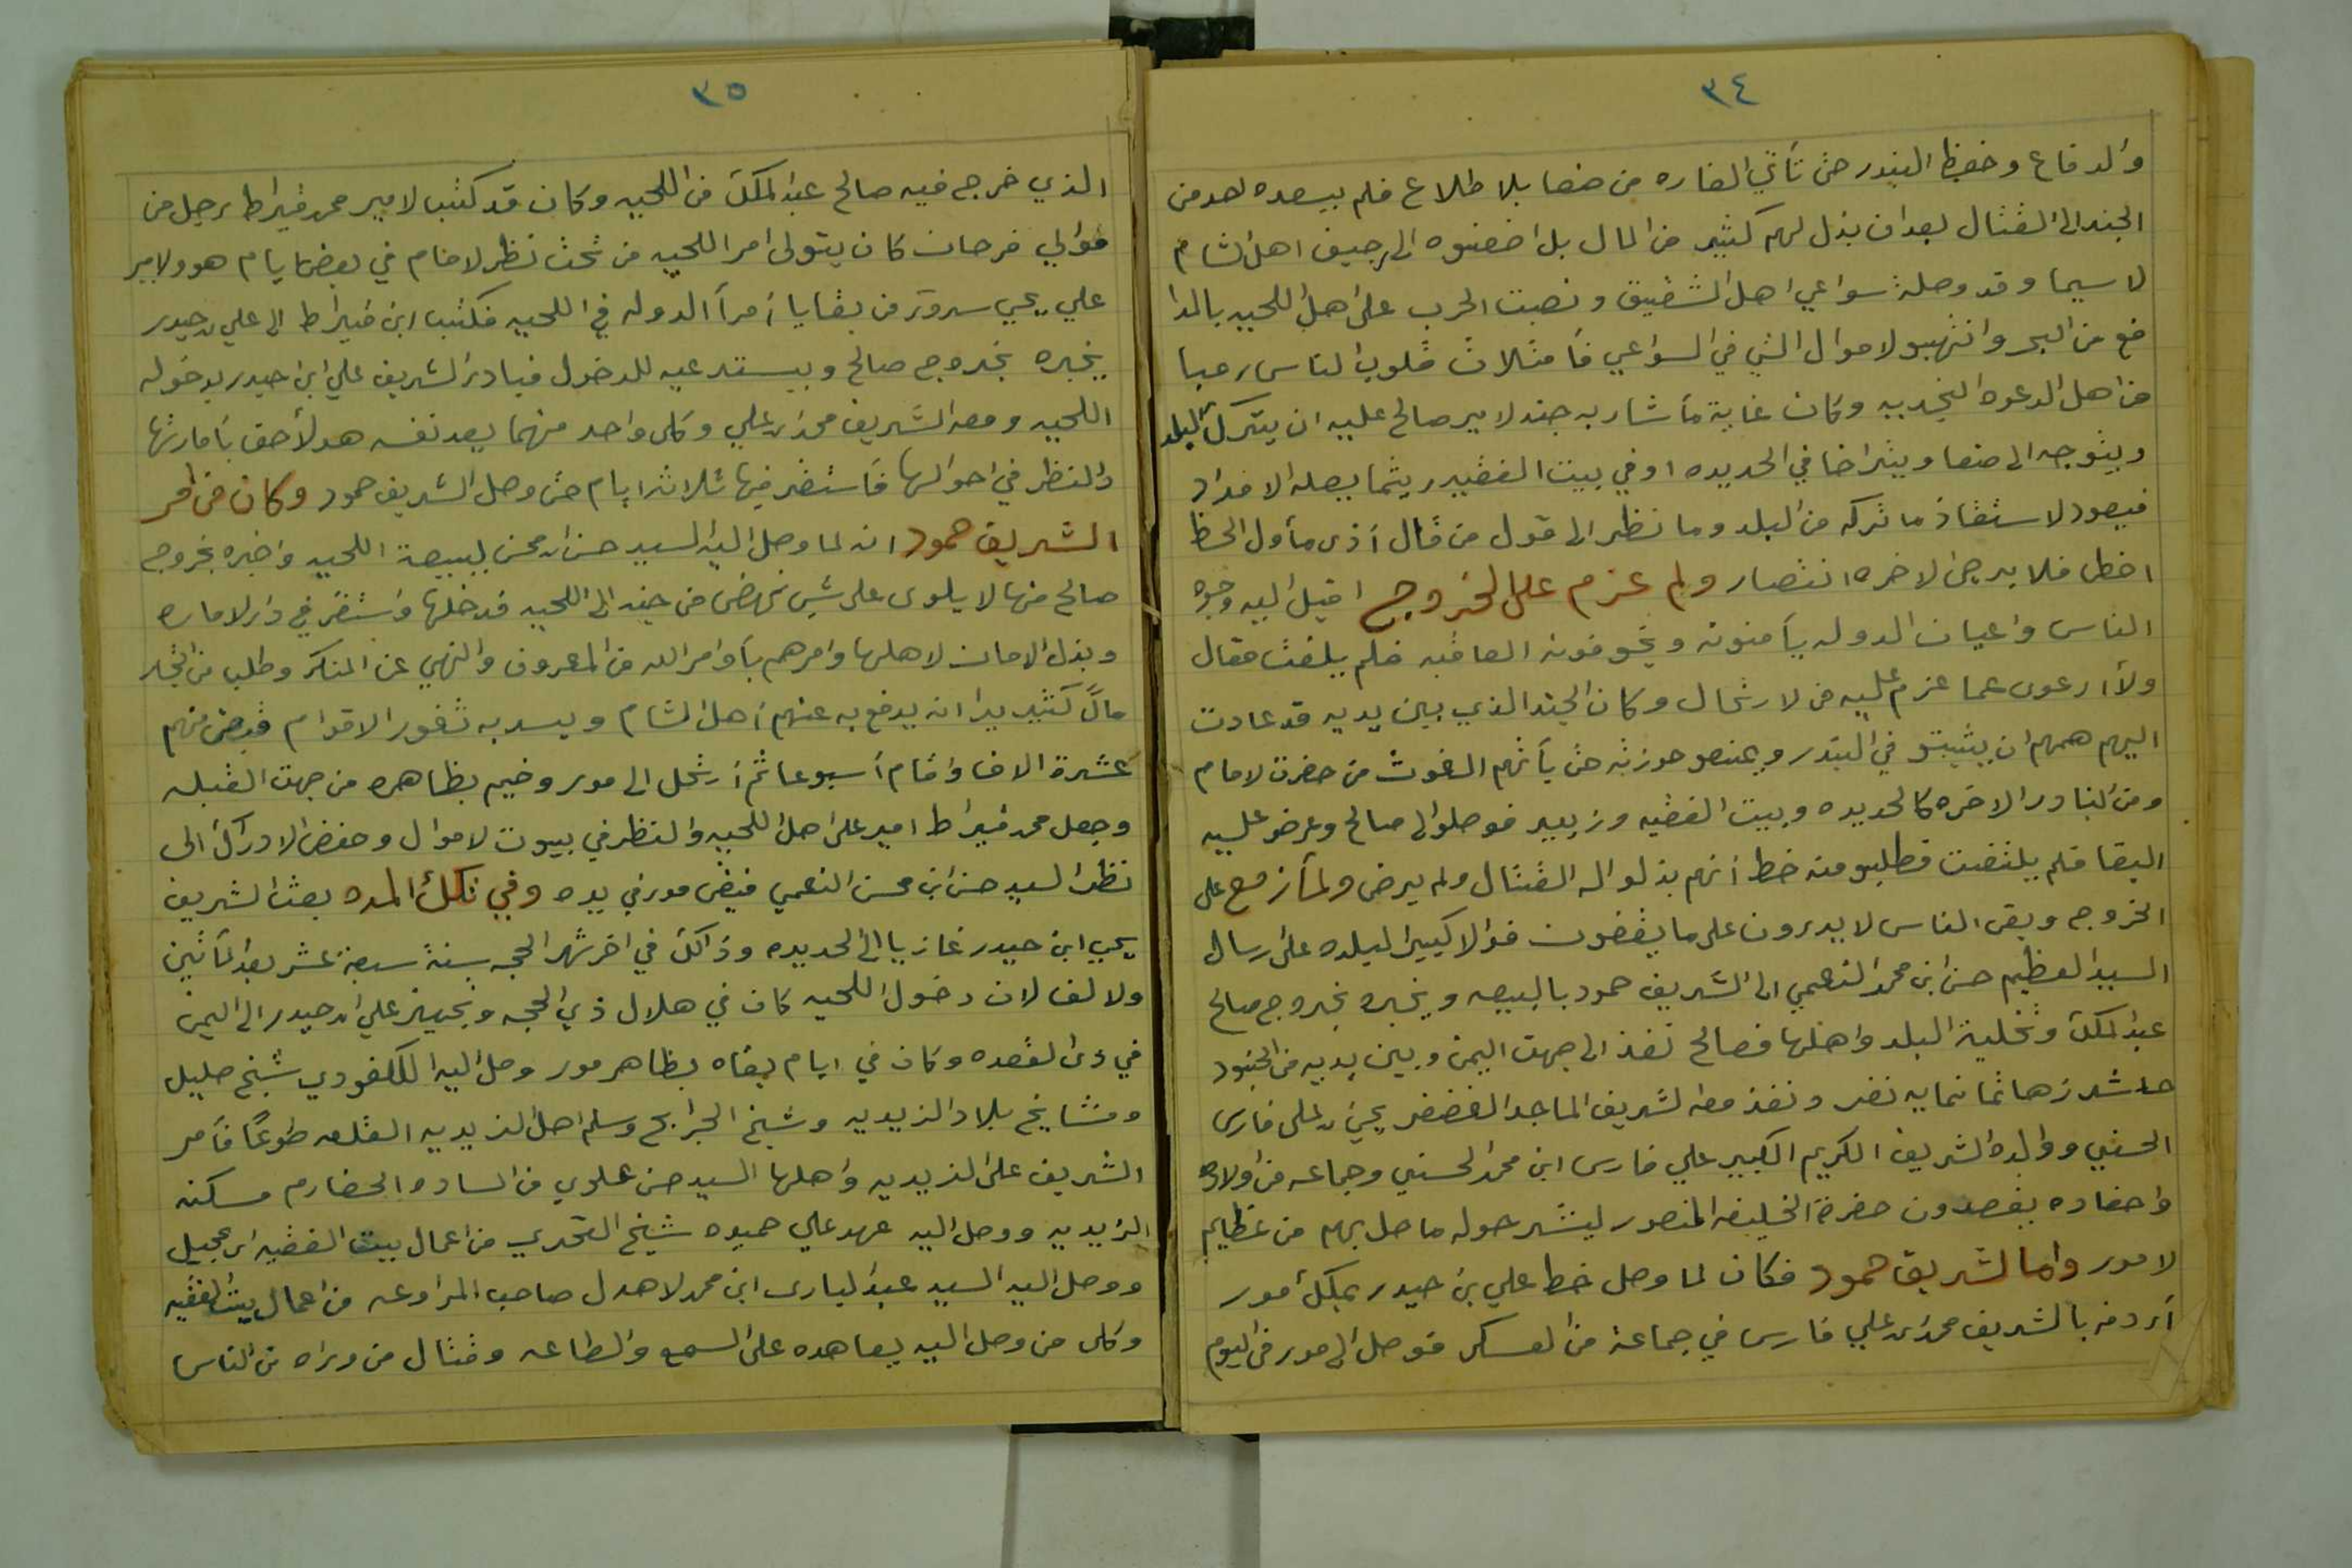 ٣٤
والدفاع وحفظ البندر حتى تأتي الغاره من صنعا بلا طلاع فلم يسعده احد من
الجند الى القتال بعد ان بذل لهم كثير من المال بل اضغنوه الى رجيف اهل الشام
لاسيما وقد وصلة سواعي اهل الشقيق ونصبت الحرب على اهل اللحيه بالمدا
فع من البحر وانتهبو لاموال التي في السواعي فأمتلات قلوب الناس رعبا
من اهل الدعوه النجديه وكان غاية مأشار به جند لامير صالح عليه ان يترك البلد
ويتوجه الى صنعا ويتراخا في الحديده او في بيت الفقيه ريثما يصله الامداد
فيعود لاستنقاذ ما تركه من البلد وما نظر الى قول من قال أذى مأول الحظ
اخطى فلا يرجى لاخره انتصار ولم عزم على الخروج اقبل اليه وجوه
الناس واعيان الدوله يأمنونه ويخوفونه العاقبه فلم يلفت مقال
ولاأرعوى عما عزم عليه من لارتحال وكان الجند الذي بين يديه قد عادت
اليهم هممهم ان يثبتو في البندر ويمنعو حوزته حتى يأتهم الغوث من حضرت لامام
ومن البنادر الاخره كالحديده وبيت الفقيه وزبيد فوصلو الى صالح وعرضو عليه
البقا فلم يلتفت فطلبو منه خط أنهم بذلو اله القتال ولم يرضى ولمأزمع على
الخروج وبقى الناس لايدرون على ما يقضون فوالا كبير البلده على رسال
السيد العظيم حسن ابن محمد النعمي الى الشريف حمود بالبيعه ويخبره بخروج صالح
عبد الملك وتخلية البلد واهلها فصالح نفذ الى جهت اليمن وبين يديه من الجنود
حاشد زها ثمانمايه نفر ونفذ معه الشريف الماجد الغضنفر يحيى ابن علي فارس
الحسني ووالده الشريف الكريم الكبير علي فارس ابن محمد الحسني وجماعه من اولاده
واحفاده يقصدون حضرة الخليفه المنصور ليشرحوله ما حل بهم من عظايم
لامور واما الشريف حمود فكان لما وصل خط علي بن حيدر بملك مور
أردفه بالشريف محمد ابن علي فارس في جماعة من العسكر فوصل الى مور في اليوم
٣٥
الذي خرج فيه صالح عبد الملك من اللحيه وكان قد كتب لامير محمد قيراط رجل من
موالي فرحان كان يتولى امر اللحيه من تحت نظر لامام في بعض لايام هو ولامير
علي يحي سرور من بقايا أمرأ الدوله في اللحيه فكتب ابن قيراط الى علي ابن حيدر
يخبره بخروج صالح ويستدعيه للدخول فبادر الشريف علي ابن حيدر بدخوله
اللحيه ومعه الشريف محمد ابن علي وكلى واحد منهما يعد نفسه هو لأحق بأمارتها
والنظر في احوالها فأستقر فيها ثلاثة ايام حتى وصل الشريف حمود وكان من امر
الشريف حمود انه لما وصل اليه السيد حسن ابن محسن ببيعة اللحيه واخبره بخروج
صالح منها لا يلوى على شي نهض من حينه الى اللحيه فدخلها وأستقر في دار لاماره
وبذل الامان لاهلها وامرهم بأوامر الله من المعروف والنهي عن المنكر وطلب من التجار
مالاً كثير يرا انه يدفع به عنهم أهل الشام ويسد به ثغور الاقوام فقبض منهم
عشرة الاف واقام أسبوعا ثم أرتحل الى مور وخيم بظاهره من جهت القبله
وجعل محمد قيراط امير على اهل اللحيه والنظر في بيوت لاموال وحفض الادراك الى
نظر السيد حسن ابن محسن النعمي فبقى مور في يده وفي تلك المده بعث الشريف
يحيى ابن حيدر غازيا الى الحديده وذالك في اخر شهر الحجه سنة سبعة عشر بعد المأتين
ولالف لان دخول اللحيه كان في هلال ذي الحجه وتجهيز علي ابن حيدر الى اليمن
في ذى القعده وكان في ايام بقاه بظاهر مور وصل اليه الكلفودي شيخ صليل
ومشايخ بلاد الزيديه وشيخ الجرابح وسلم اهل الزيديه القلعه طوعاً فأمر
الشريف على الزيديه واهلها السيد حسن علوي من الساده الحضارم مسكنه
الزيديه ووصل اليه عهد علي حميده شيخ القحري من اعمال بيت الفقيه ابن عجيل
ووصل اليه السيد عبد الباري ابن محمد لاهدل صاحب المراوعه من اعمال بيت الفقيه
وكلى من وصل اليه يعاهده على السمع والطاعه وقتال من وراه من الناس